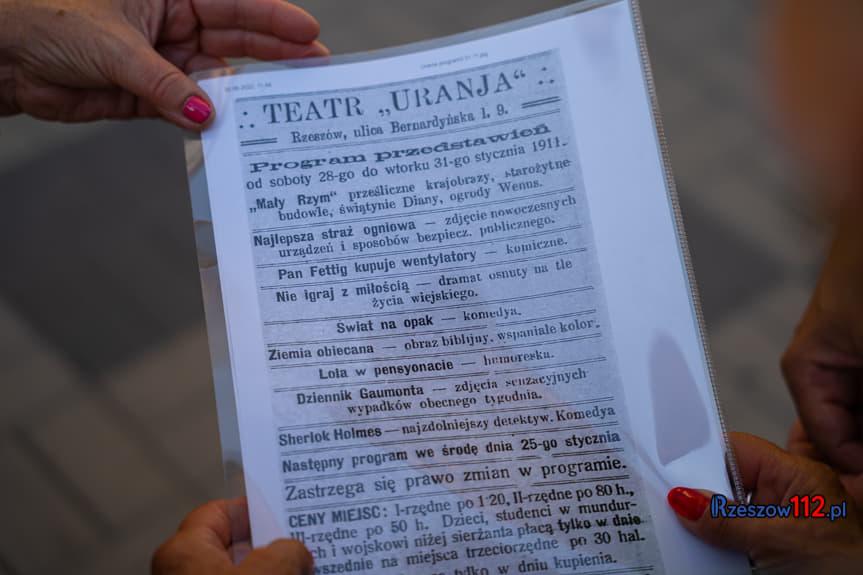 ∴ TEATR „URANJA“ ∴
Rzeszów, ulica Bernardyńska l. 9.
Program przedstawień
od soboty 28-go do wtorku 31-go stycznia 1911.
„Mały Rzym“ prześliczne krajobrazy, starożytne
budowle, świątynie Diany, ogrody Wenus.
Najlepsza straż ogniowa — zdjęcie nowoczesnych
urządzeń i sposobów bezpiecz. publicznego.
Pan Fettig kupuje wentylatory — komiczne.
Nie igraj z miłością — dramat osnuty na tle
życia wiejskiego.
Świat na opak — komedya.
Ziemia obiecana — obraz biblijny, wspaniałe kolor.
Lola w pensyonacie — humoreska.
Dziennik Gaumonta — zdjęcia senzacyjnych
wypadków obecnego tygodnia.
Sherlok Holmes — najzdolniejszy detektyw. Komedya
Następny program we środę dnia 25-go stycznia
Zastrzega się prawo zmian w programie.
CENY MIEJSC: I-rzędne po 1·20, II-rzędne po 80 h.,
III-rzędne po 50 h. Dzieci, studenci w mundur-
ch i wojskowi niżej sierżanta płacą tylko w dnie
wszednie na miejsca trzeciorzędne po 30 hal.
tylko w dniu kupienia.
Rzeszow112.pl